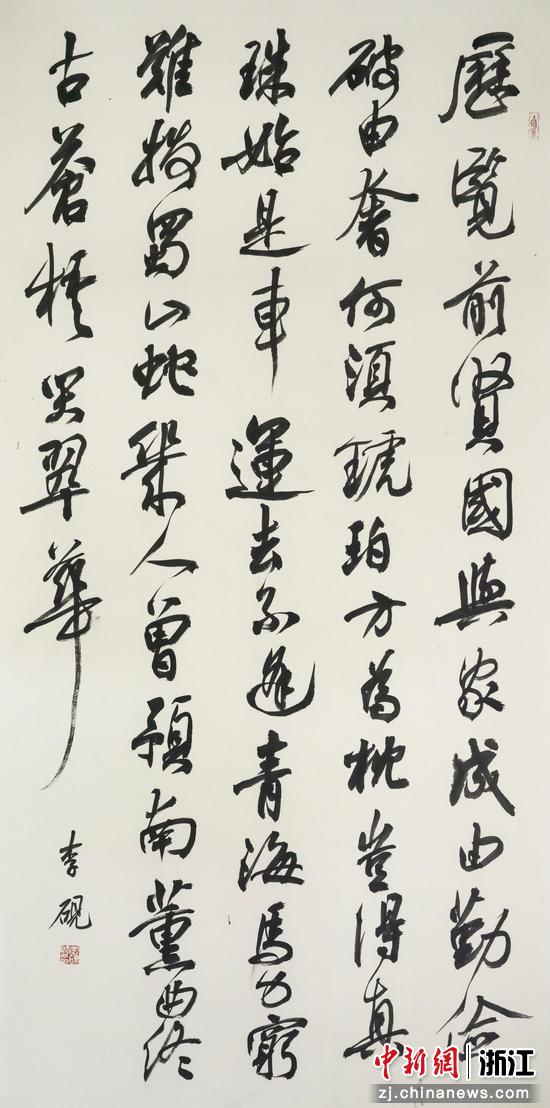 歷覽前賢國與家成由勤儉
破由奢何須琥珀方為枕豈得真
珠始是車運去不逢青海馬力窮
難拔蜀山蛇幾人曾預南薰曲終
古蒼梧哭翠華
李硯
中新網 浙江
zj.chinanews.com